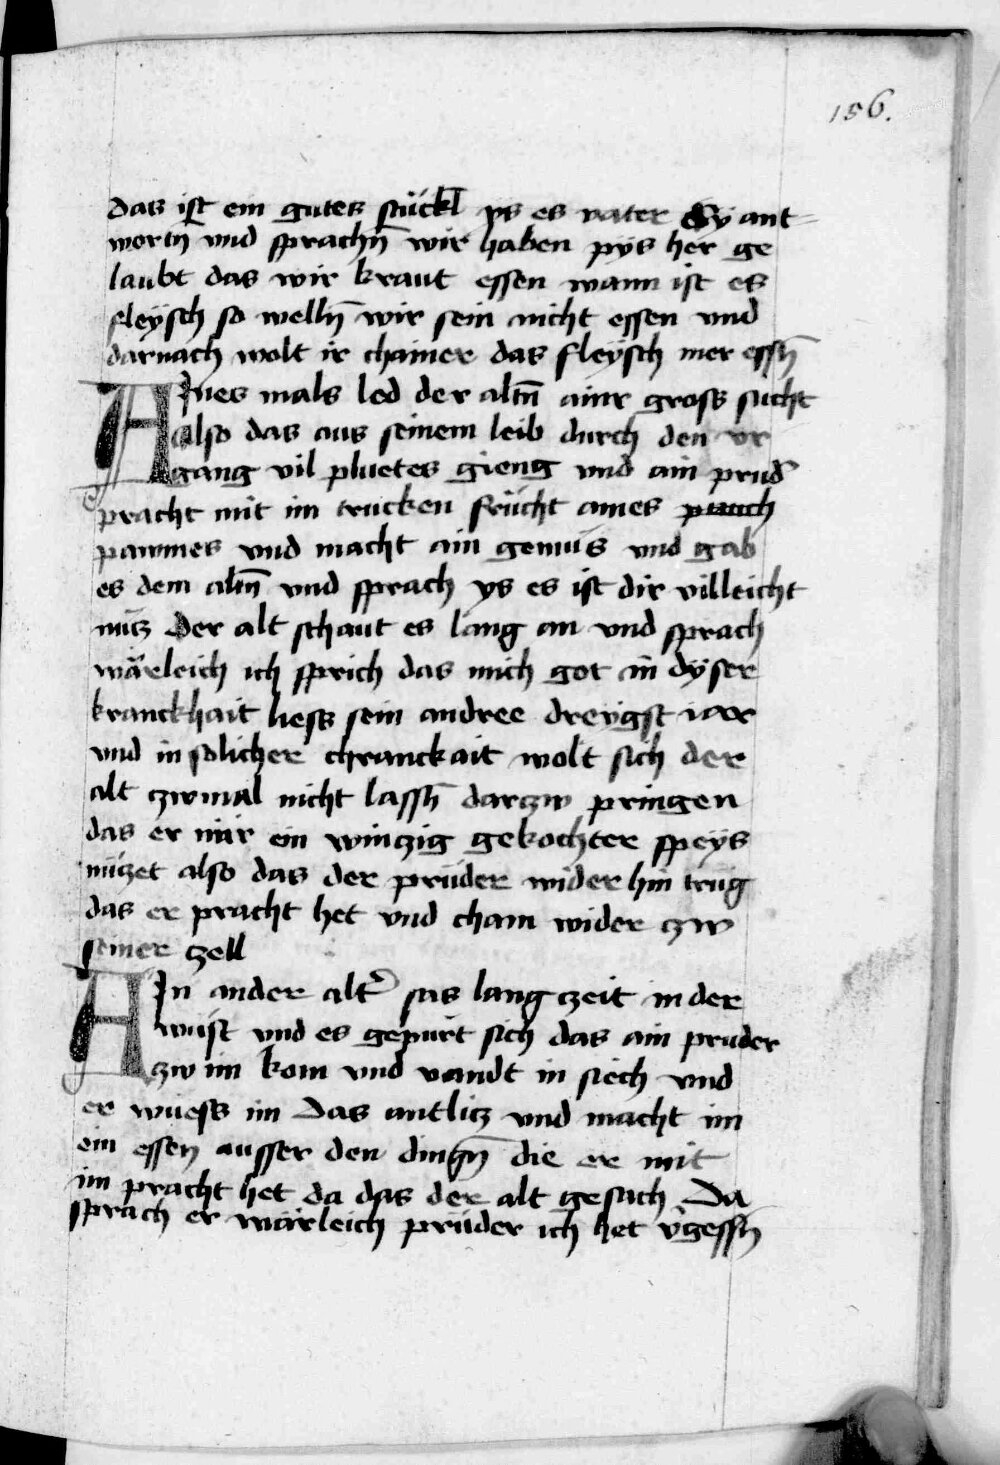 156.
das ist ein gutes stückl ys es vater Sy ant-
wortn̄ vnd sprachn̄ wir haben pys her ge
laubt das wir kraut essen wann ist es
fleÿsch so welln̄ wir sein nicht essen vnd
darnach wolt ir chainer das fleÿsch mer essn̄
AInes mals led der altn̄ ainr gross sucht
also das aus seinem leib durch den vr
gang vil pluetes gieng vnd ain prud̄
pracht mit im trucken frücht aines pauch
pawmes vnd macht ain gemüs vnd gab
es dem altn̄ vnd sprach ys es ist dir villeicht
nütz Der alt schaut es lang an vnd sprach
wärleich ich sprich das mich got in dÿser
kranckhait liess sein andree dreÿgst iar
vnd in solicher chranckait wolt sich der
alt zwmal nicht lassn̄ darzw pringen
das er nür ein winczig gekochter speÿs
nüczet also das der prüder wider hin trüg
das er pracht het vnd cham wider zw
seiner zell
AIn ander altr̄ sas lang zeit in der
wüst vnd es gepürt sich das ain pruder
zw im kom vnd vandt in siech vnd
er wuess im das antlicz vnd macht im
ein essen ausser den dingn̄ die er mit
im pracht het da das der alt gesach Da
sprach er wärleich prüder ich het v̄gessn̄